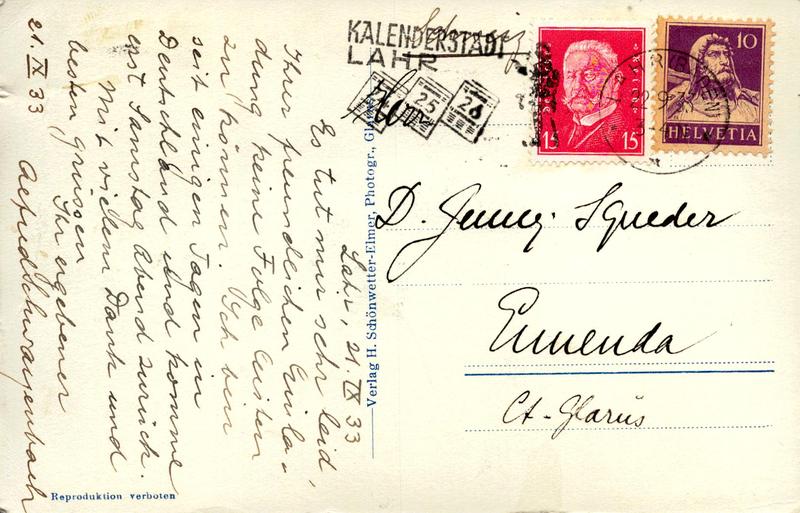 Lahr, 21. IX 33
Es tut mir sehr leid,
Ihrer freundlichen Einla-
dung keine Folge leisten
zu können. Ich bin
seit einigen Tagen in
Deutschland und komme
erst Samstag Abend zurück.
Mit vielem Dank und
besten Grüssen
Ihr ergebener
21. IX 33
Reproduktion verboten
Verlag H. Schönwetter-Elmer, Photogr., Glarus
KALENDERSTADT
LAHR
25
26
15 15
10
HELVETIA
Schweiz
D. Jenny-Squeder
Ennenda
Ct. Glarus